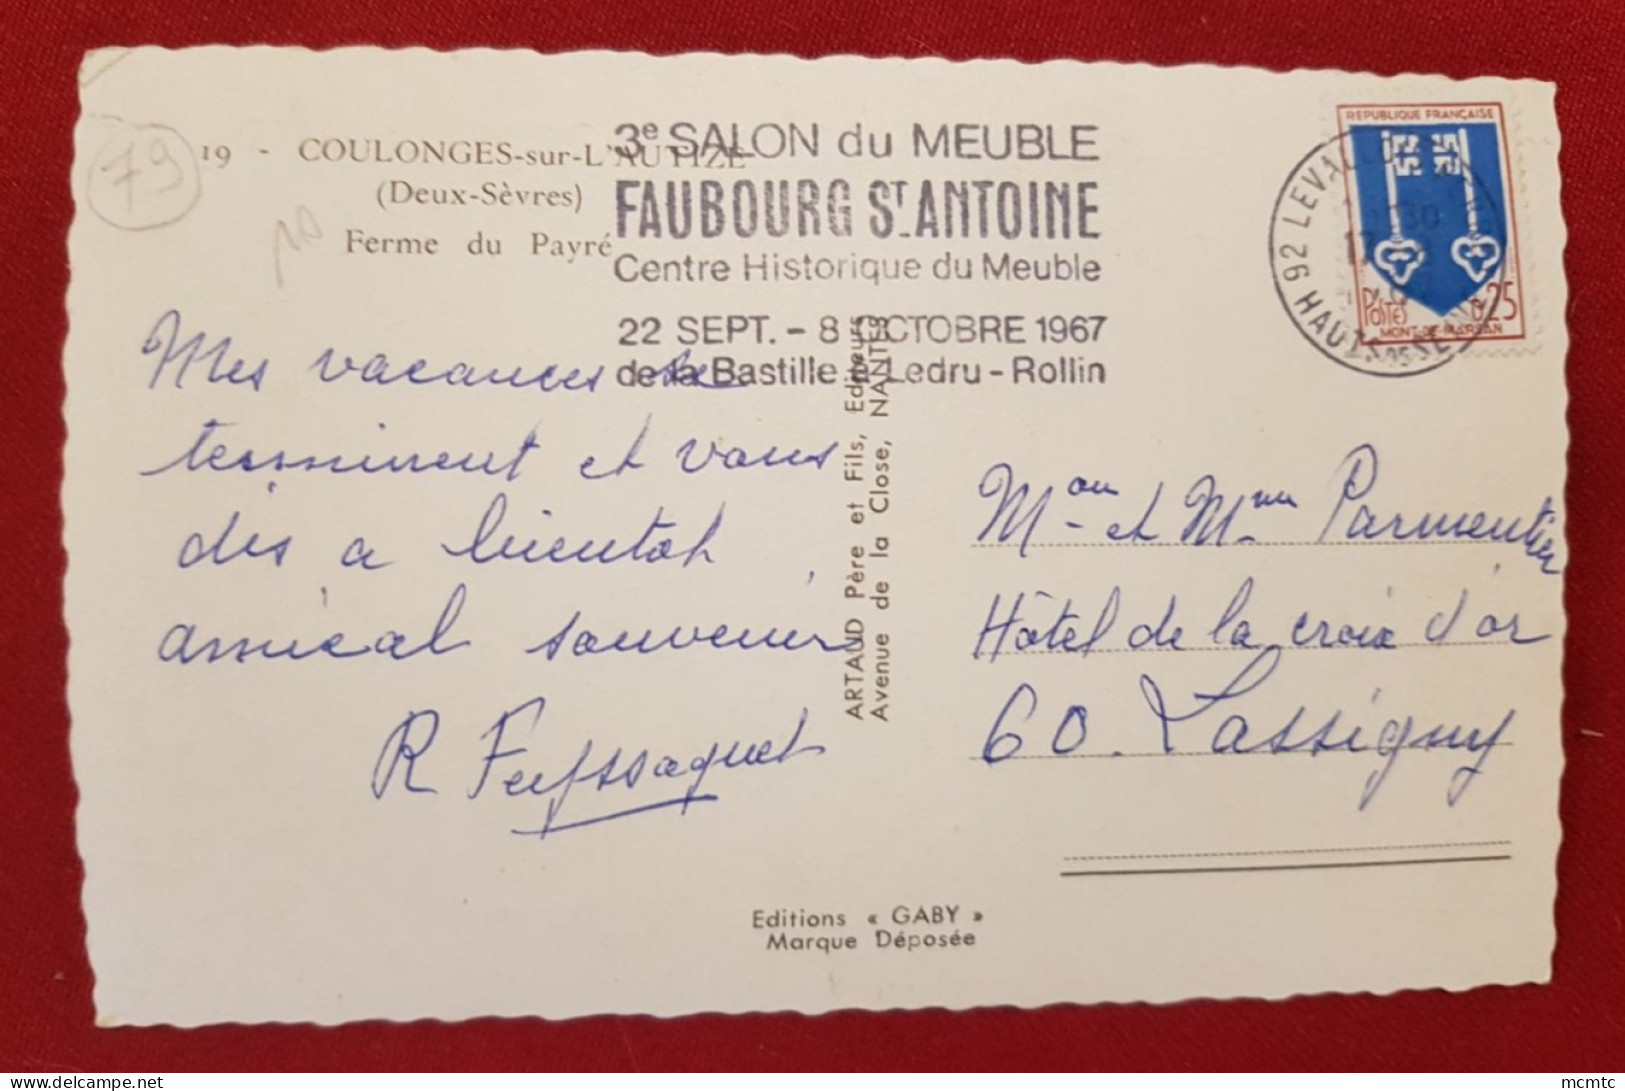 79
19 - COULONGES-sur-L'AUTIZE
(Deux-Sèvres)
Ferme du Payré
3e SALON du MEUBLE
FAUBOURG ST ANTOINE
Centre Historique du Meuble
22 SEPT. - 8 OCTOBRE 1967
de la Bastille à Ledru-Rollin
REPUBLIQUE FRANÇAISE
POSTES
0,25
MONT-DE-MARSAN
92 LEVALLOIS
HAUTS DE SEINE
Mes vacances se
terminent et vous
dis a bientot
amical souvenir
R
ARTAUD Père et Fils, Editeurs
Avenue de la Close, NANTES
Mon et Mme Parmentier
Hôtel de la croix d'or
60. Lassigny
Editions « GABY »
Marque Déposée
mcmtc